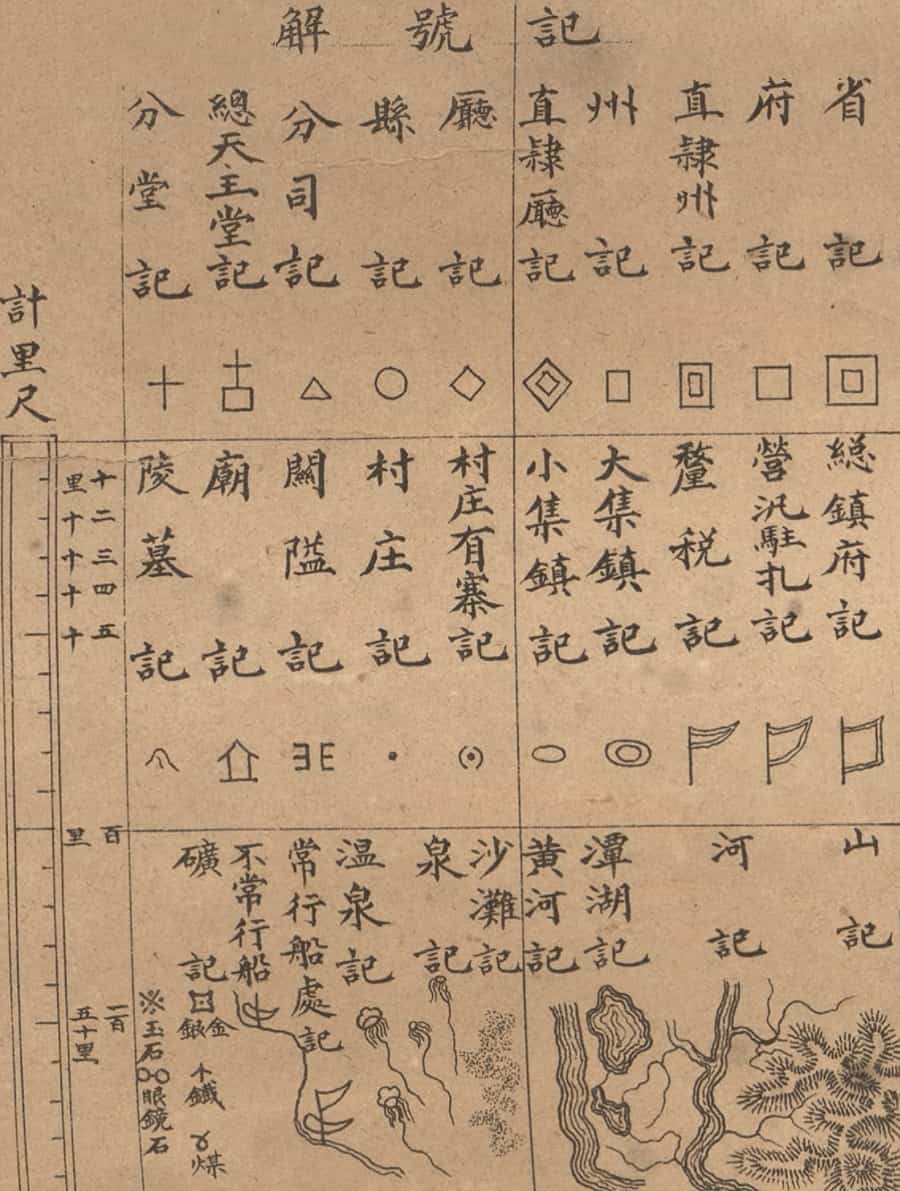 記號解
省記
府記
直隸州記
州記
直隸廳記
廳記
縣記
分司記
總天主堂記
分堂記
総鎮府記
營汛駐扎記
釐税記
大集鎮記
小集鎮記
村庄有寨記
村庄記
關隘記
廟記
陵墓記
山記
河記
潭湖記
黃河記
沙灘記
泉記
温泉記
常行船處記
不常行船
礦記
金銀
鐵
煤
玉石
眼鏡石
計里尺
十里
二十
三十
四十
五十
百里
一百五十里